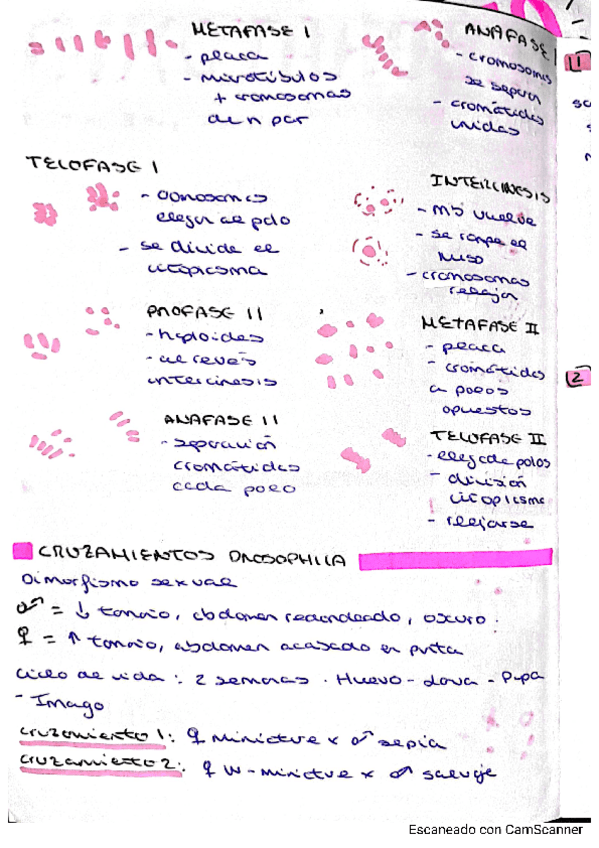 METAFASE I
- placa
- microtúbulos
+ cromosomas
de n par
ANAFASE I
- cromosomas
se separan
- cromátidas
unidas
TELOFASE I
- cromosomas
llegan al polo
- se divide el
citoplasma
INTERCINESIS
- MN vuelve
- se rompe el
huso
- cromosomas
relajan
PROFASE II
- haploides
- al revés
intercinesis
METAFASE II
- placa
- cromátidas
a polos
opuestos
ANAFASE II
- separación
cromátidas
cada polo
TELOFASE II
- llegada polos
- división
citoplasma
- relajarse
CRUZAMIENTOS DROSOPHILA
Dimorfismo sexual
♂ = ↓ tamaño, abdomen redondeado, oscuro.
♀ = ↑ tamaño, abdomen acabado en punta
ciclo de vida: 2 semanas. Huevo - Larva - Pupa
- Imago
cruzamiento 1: ♀ miniature x ♂ sepia
cruzamiento 2: ♀ w-miniature x ♂ salvaje
1
2
Escaneado con CamScanner